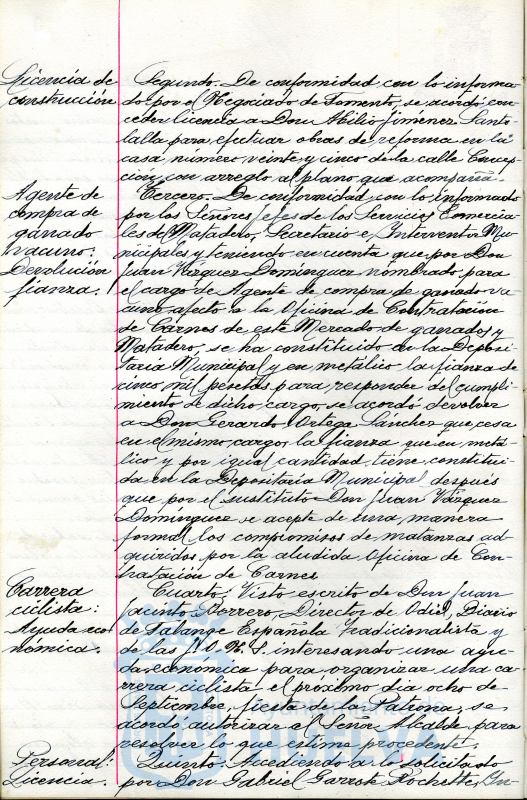 Licencia de
construcción
Segundo. De conformidad con lo informa-
do por el Negociado de Fomento, se acordó con-
ceder licencia a Don Abilio Jimenez Santo-
lalla para efectuar obras de reforma en la
casa número veinte y cinco de la calle Concep-
ción, con arreglo al plano que acompaña.
Agente de
compra de
ganado
vacuno.
Devolución
fianza.
Tercero. De conformidad con lo informado
por los Señores Jefes de los Servicios Comercia-
les de Matadero, Secretario e Interventor Mu-
nicipales y teniendo en cuenta que por Don
Juan Vázquez Dominguez nombrado para
el cargo de Agente de compra de ganado va-
cuno afecto a la Oficina de Contratación
de Carnes de este Mercado de ganados y
Matadero, se ha constituido en la Deposi-
taria Municipal y en metálico la fianza de
cinco mil pesetas para responder del cumpli-
miento de dicho cargo, se acordó devolver
a Don Gerardo Ortega Sanchez que cesa
en el mismo cargo, la fianza que en metá-
lico y por igual cantidad tiene constitui-
da en la Depositaria Municipal después
que por el sustituto Don Juan Vázquez
Domínguez se acepte de una manera
formal los compromisos de matanzas ad-
quiridos por la aludida Oficina de Con-
tratación de Carnes
Carrera
ciclista:
Ayuda eco-
nómica.
Cuarto. Visto escrito de Don Juan
Jacinto Director de Odiel, Diario
de Falange Española Tradicionalista y
de las J.O.N.S. interesando una ayu-
da económica para organizar una ca-
rrera ciclista el próximo dia ocho de
Septiembre, fiesta de la Patrona, se
acordó autorizar el Señor Alcalde para
resolver lo que estime procedente.
Personal:
Licencia.
Quinto. Accediendo a lo solicitado
por Don Gabriel Garrok Rochette, In-
Ayuntamiento de
HUELVA